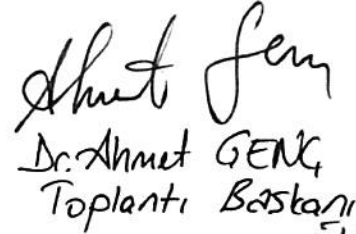 Ahmet Genç
Dr. Ahmet GENÇ
Toplantı Başkanı